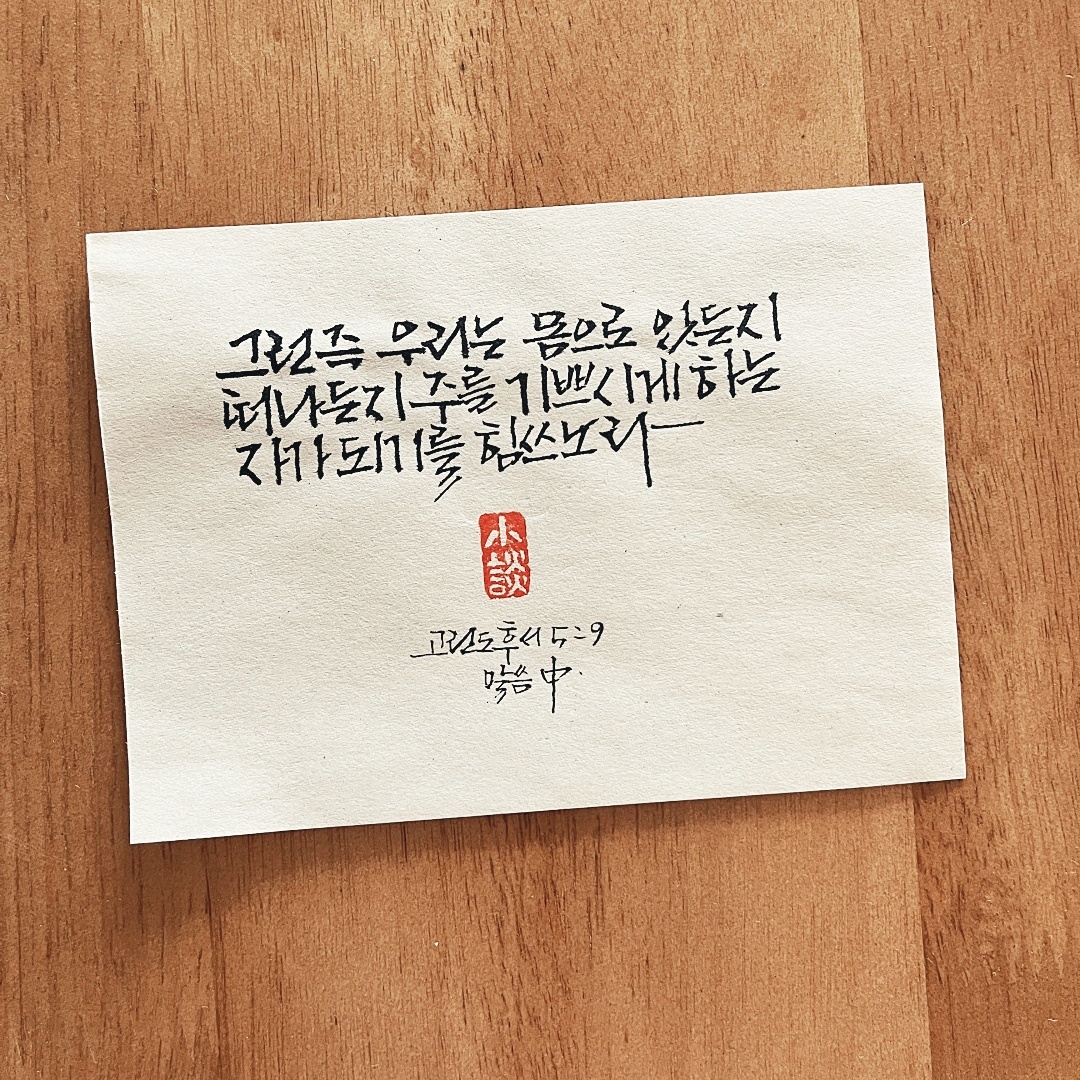 그런즉 우리는 몸으로 있든지
떠나든지 주를 기쁘시게 하는
자가 되기를 힘쓰노라
小談
고린도후서 5:9
말씀 中.